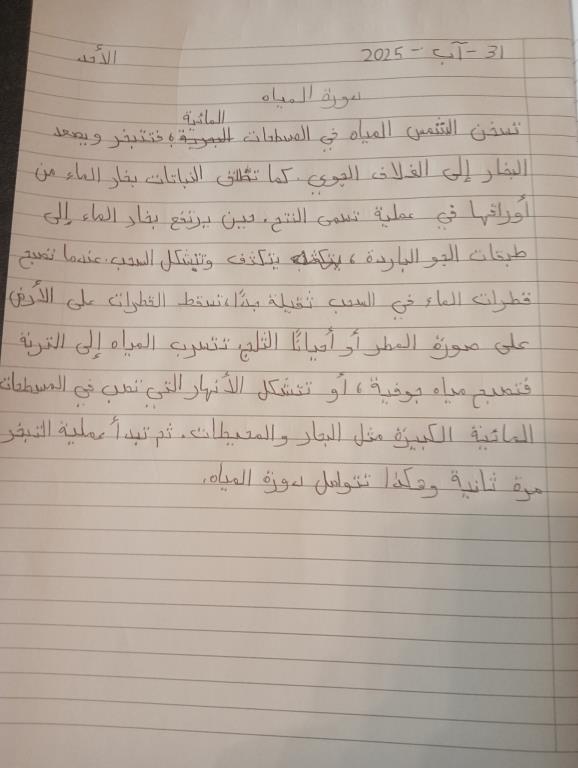 31 - آب - 2025 الأحد
دورة المياه
تسخن الشمس المياه في المسطحات المائية، فتتبخر ويصعد
البخار إلى الغلاف الجوي. كما تطلق النباتات بخار الماء من
أوراقها في عملية تسمى النتح. حين يرتفع بخار الماء إلى
طبقات الجو الباردة، يتكثف وتتشكل السحب. عندما تصبح
قطرات الماء في السحب ثقيلة جدًا، تسقط القطرات على الأرض
على صورة المطر أو أحيانًا الثلج. تتسرب المياه إلى التربة
فتصبح مياه جوفية، أو تتشكل الأنهار التي تصب في المسطحات
المائية الكبيرة مثل البحار والمحيطات. ثم تبدأ عملية التبخر
مرة ثانية وهكذا تتواصل دورة المياه.